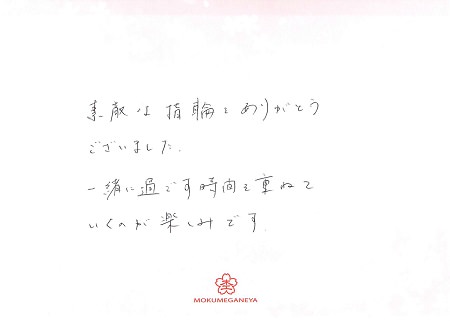 素敵な指輪をありがとう
ございました.
一緒に過ごす時間を重ねて
いくのが楽しみです.
MOKUMEGANEYA